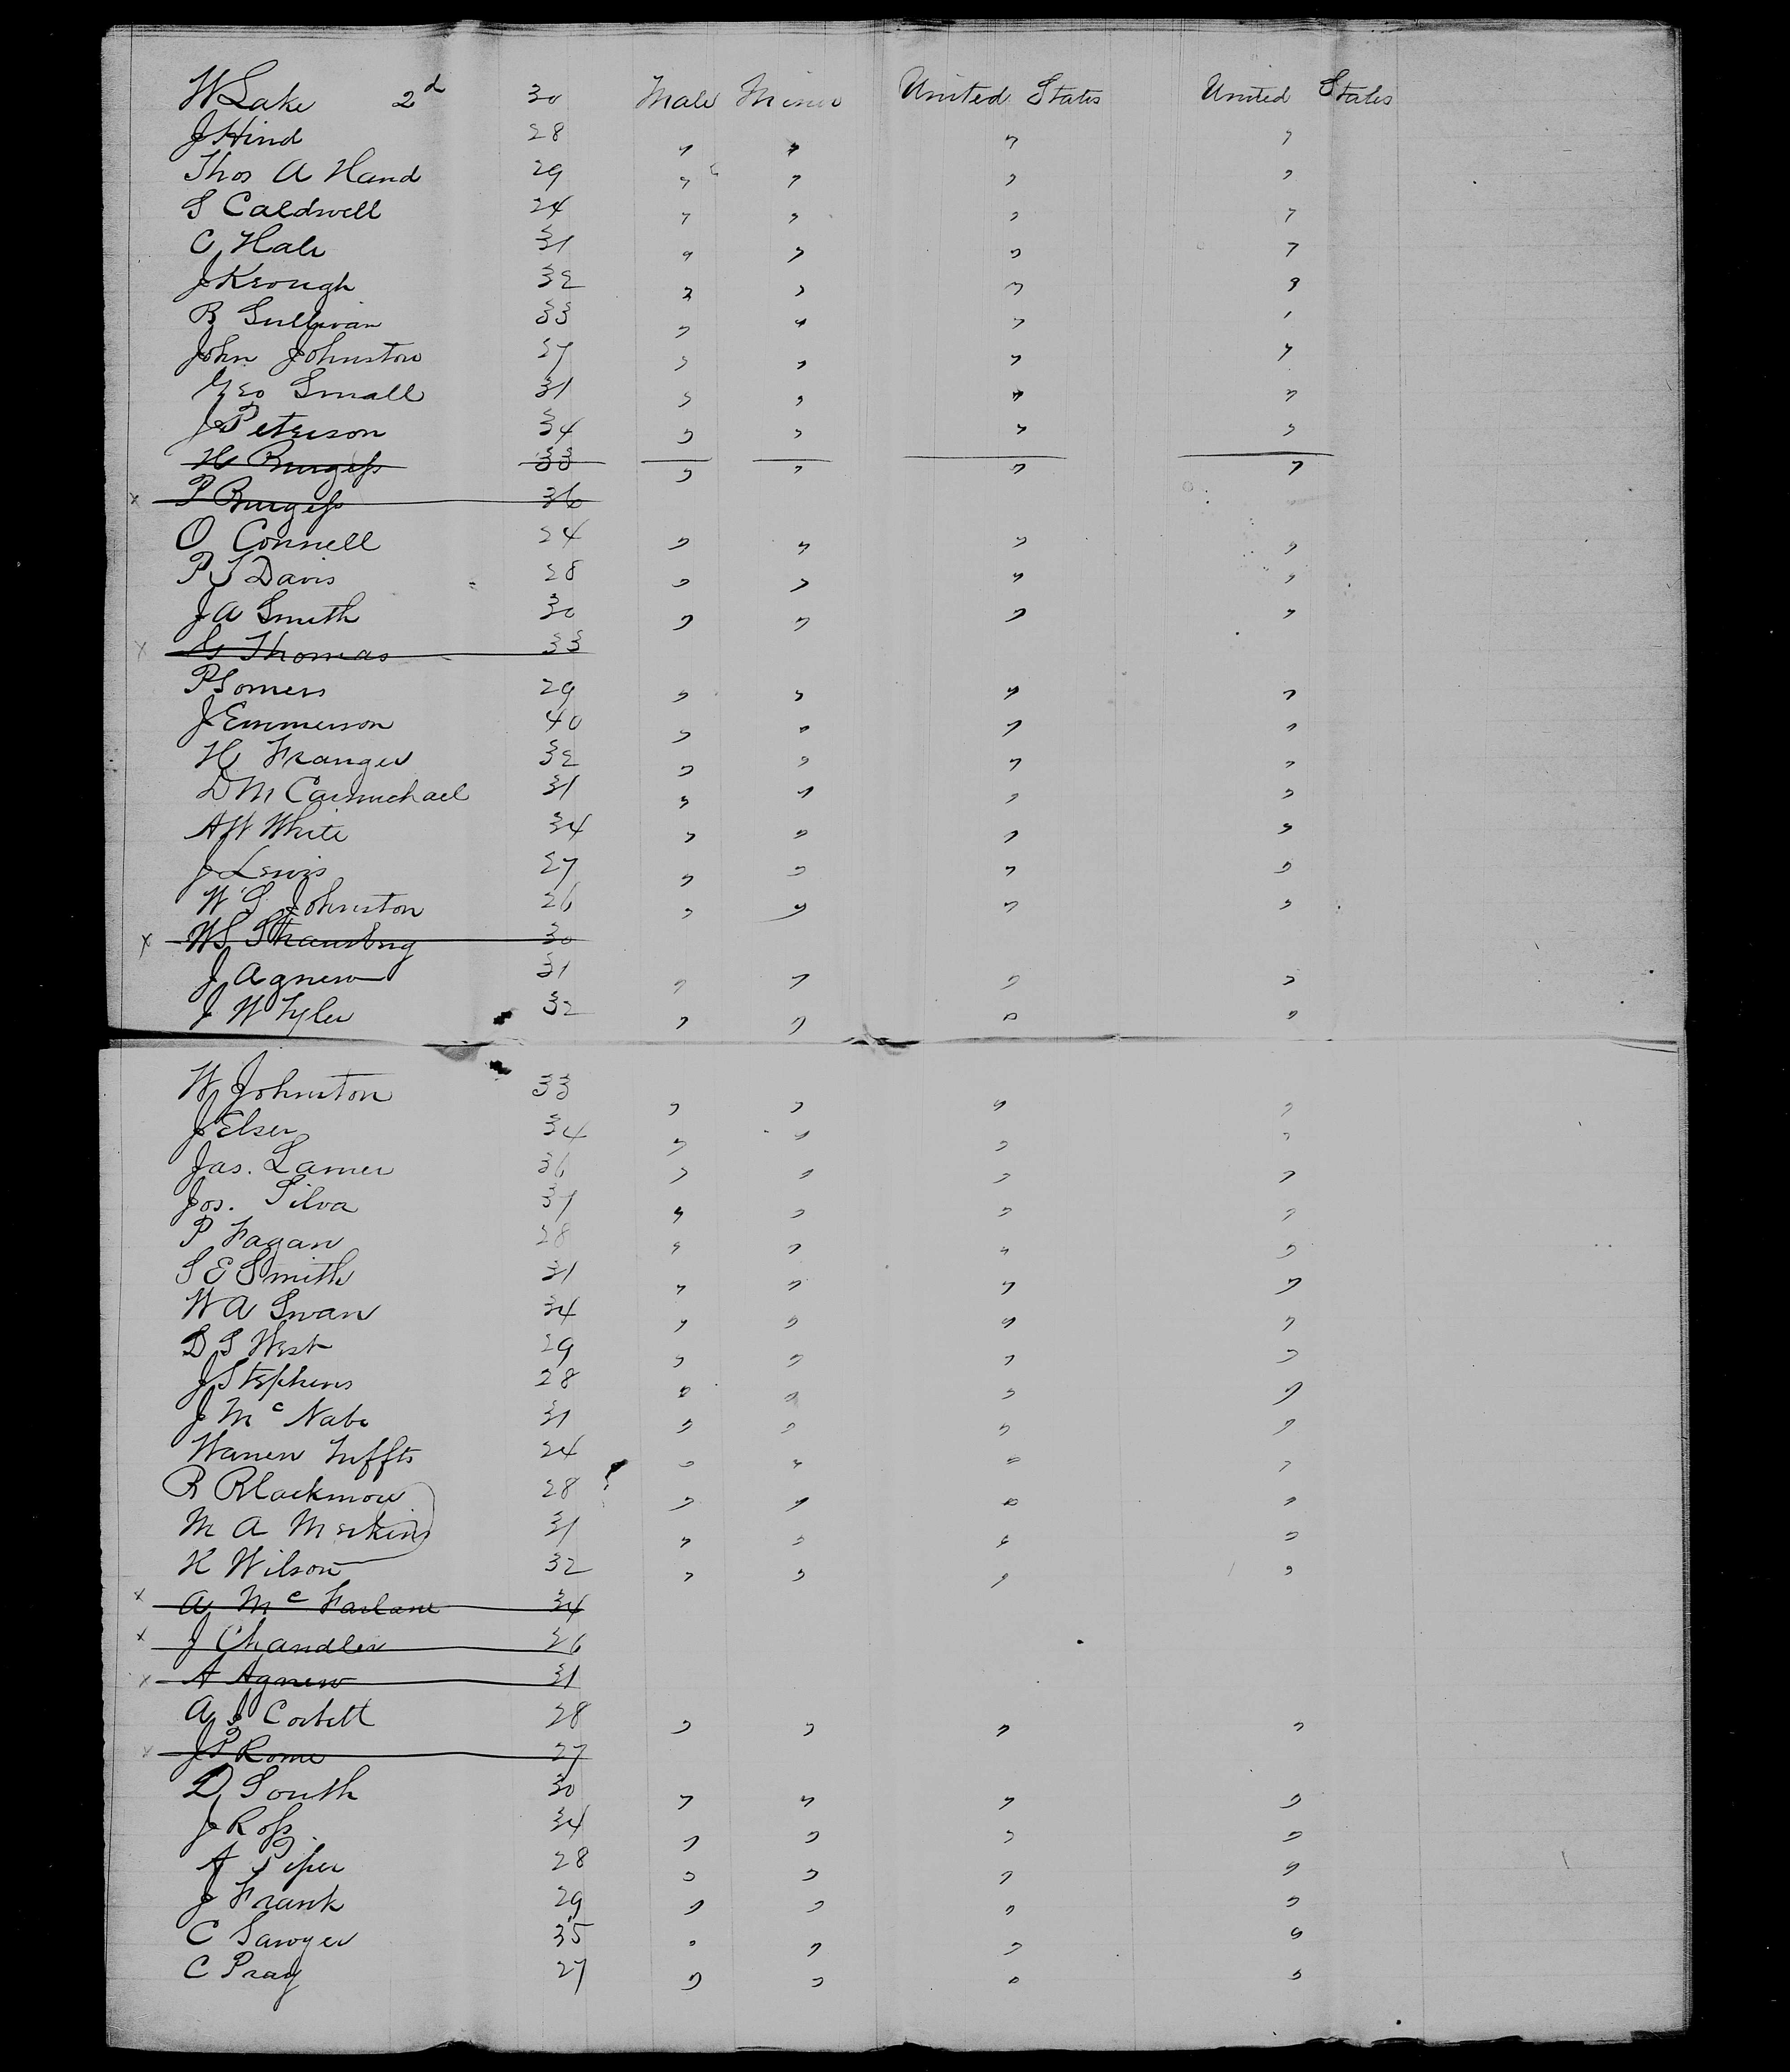 W Lake 2d 30 Male Miner United States United States
J Hind 28 " " " "
Thos A Hand 29 " " " "
S Caldwell 24 " " " "
C Hale 31 " " " "
J Keough 32 " " " "
B Sullivan 33 " " " "
John Johnston 27 " " " "
Geo Small 31 " " " "
J Peterson 34 " " " "
H Burgess 33 " " " "
x P Burgess 36
O Connell 24 " " " "
P S Davis 28 " " " "
J A Smith 30 " " " "
x G Thomas 33
P Somers 29 " " " "
J Emmerson 40 " " " "
H Franger 32 " " " "
D M Carmichael 31 " " " "
A W White 34 " " " "
J Lewis 27 " " " "
W S Johnston 26 " " " "
x W S Strausbug 30
J Agnew 31 " " " "
J W Tyler 32 " " " "
W Johnston 33 " " " "
J Elser 34 " " " "
Jas. Lamer 36 " " " "
Jos. Silva 37 " " " "
P Fagan 28 " " " "
S E Smith 31 " " " "
W A Swan 34 " " " "
D S West 29 " " " "
J Stephens 28 " " " "
J Mc Nabo 31 " " " "
Warren Tuffts 24 " " " "
R Blackmore 28 " " " "
M A Merkins 31 " " " "
H Wilson 32 " " " "
x A Mc Farlane 34
x J Chandler 26
x A Agnew 31
A J Corbett 28 " " " "
x J P Rome 27
D South 30 " " " "
J Ross 34 " " " "
A Piper 28 " " " "
J Frank 29 " " " "
C Sawyer 35 " " " "
C Pray 27 " " " "